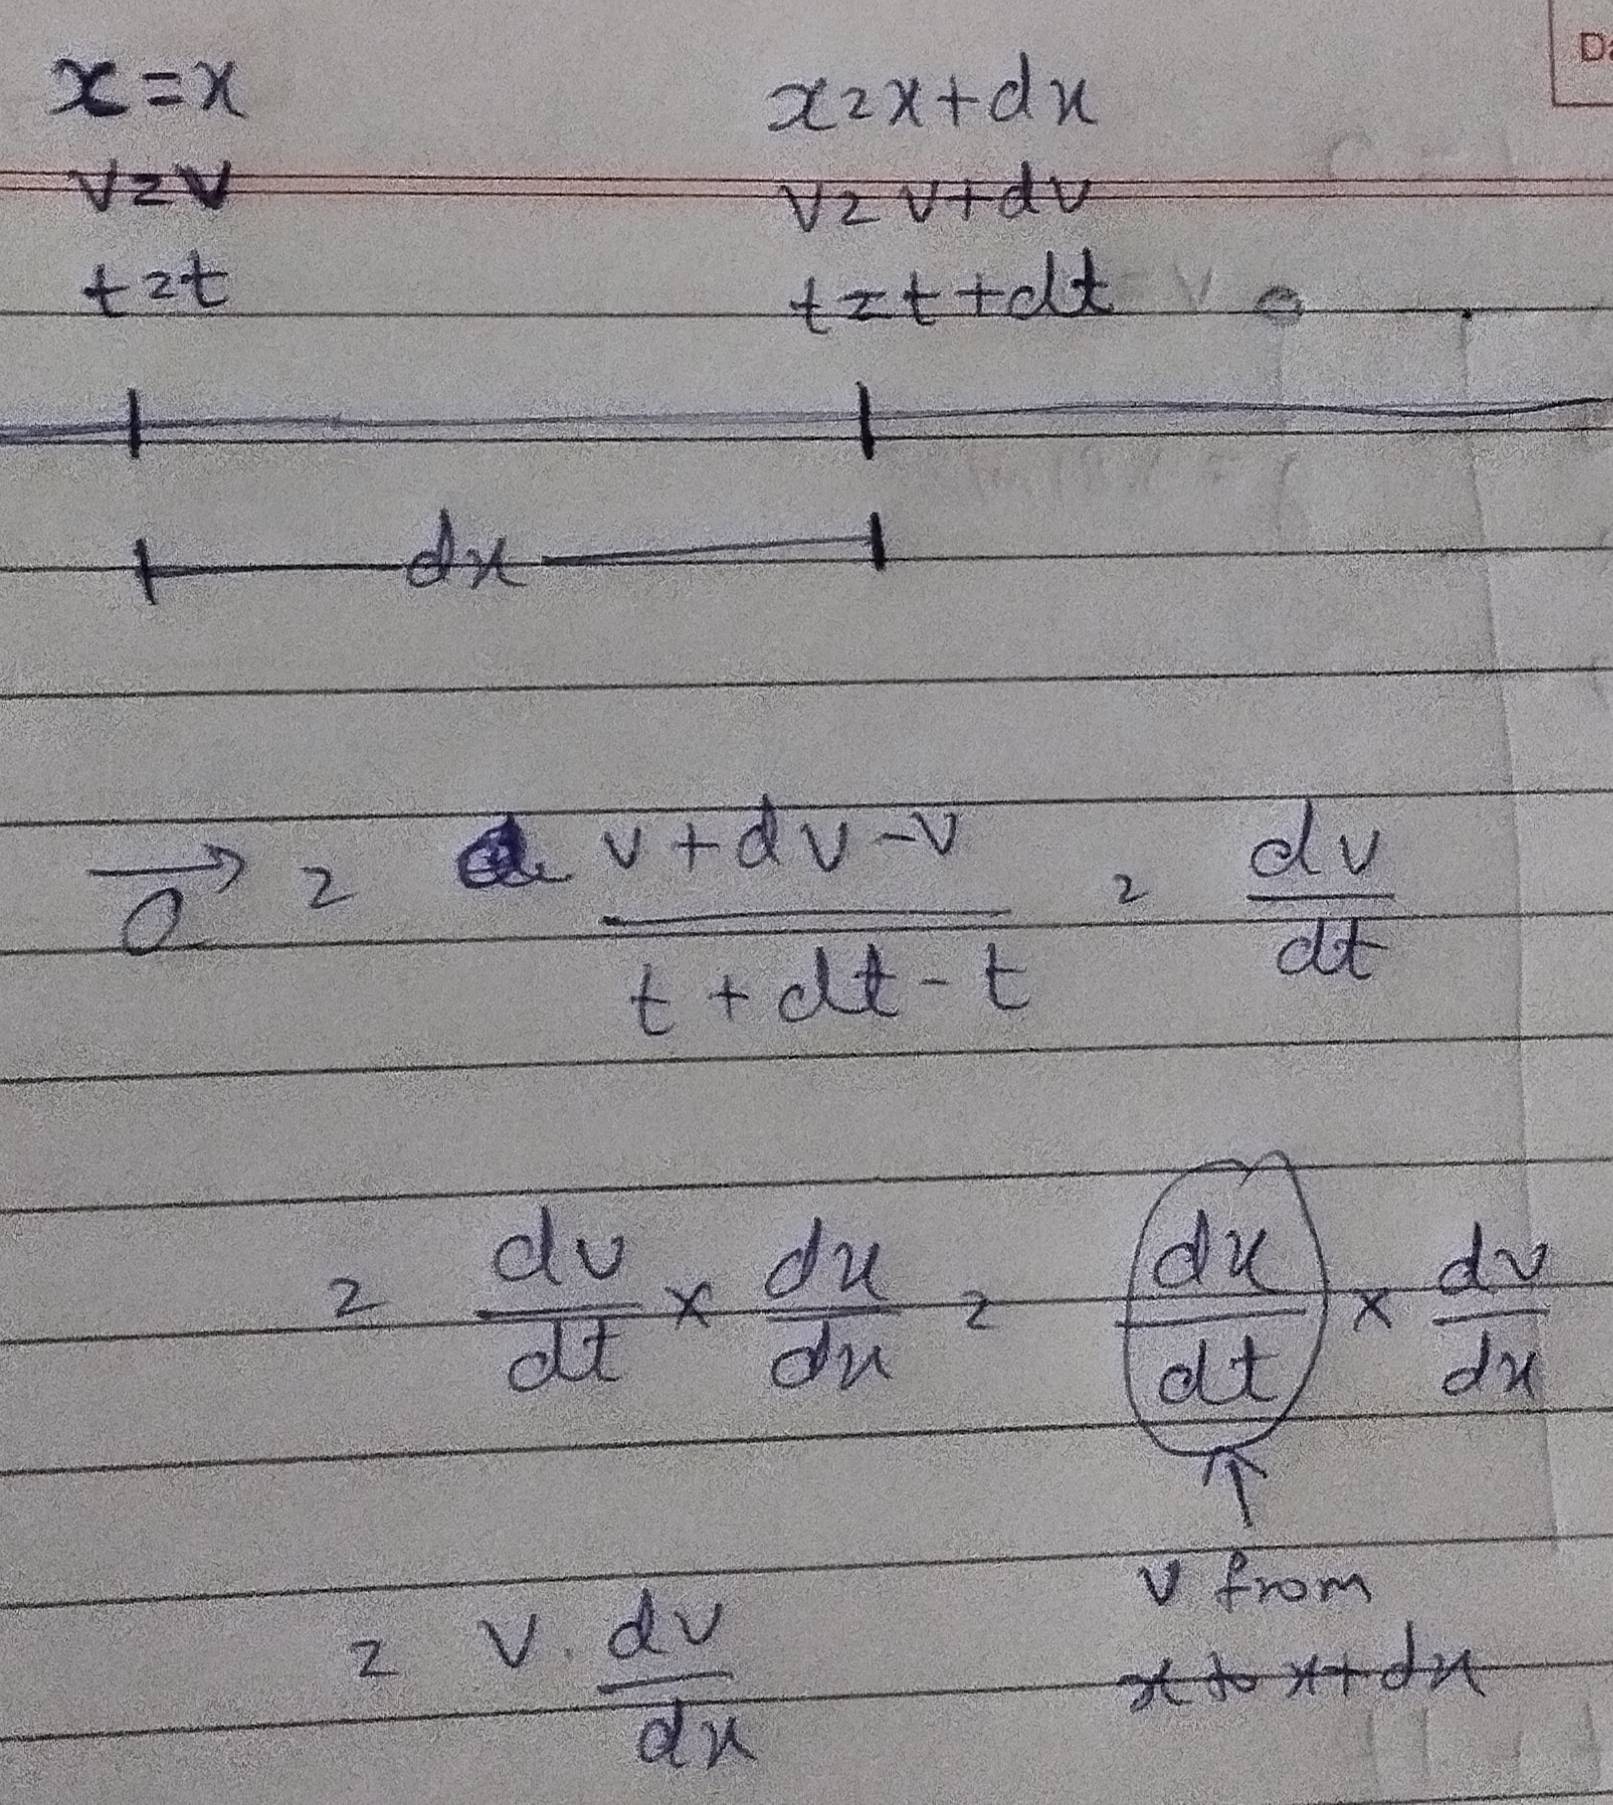 Da
x = x
x = x + dx
v = v
v = v + dv
t = t
t = t + dt
dx
a⃗ = (v + dv - v)/(t + dt - t) = dv/dt
= dv/dt × dx/dx = dx/dt × dv/dx
↑
v from
x to x + dx
= v. dv/dx